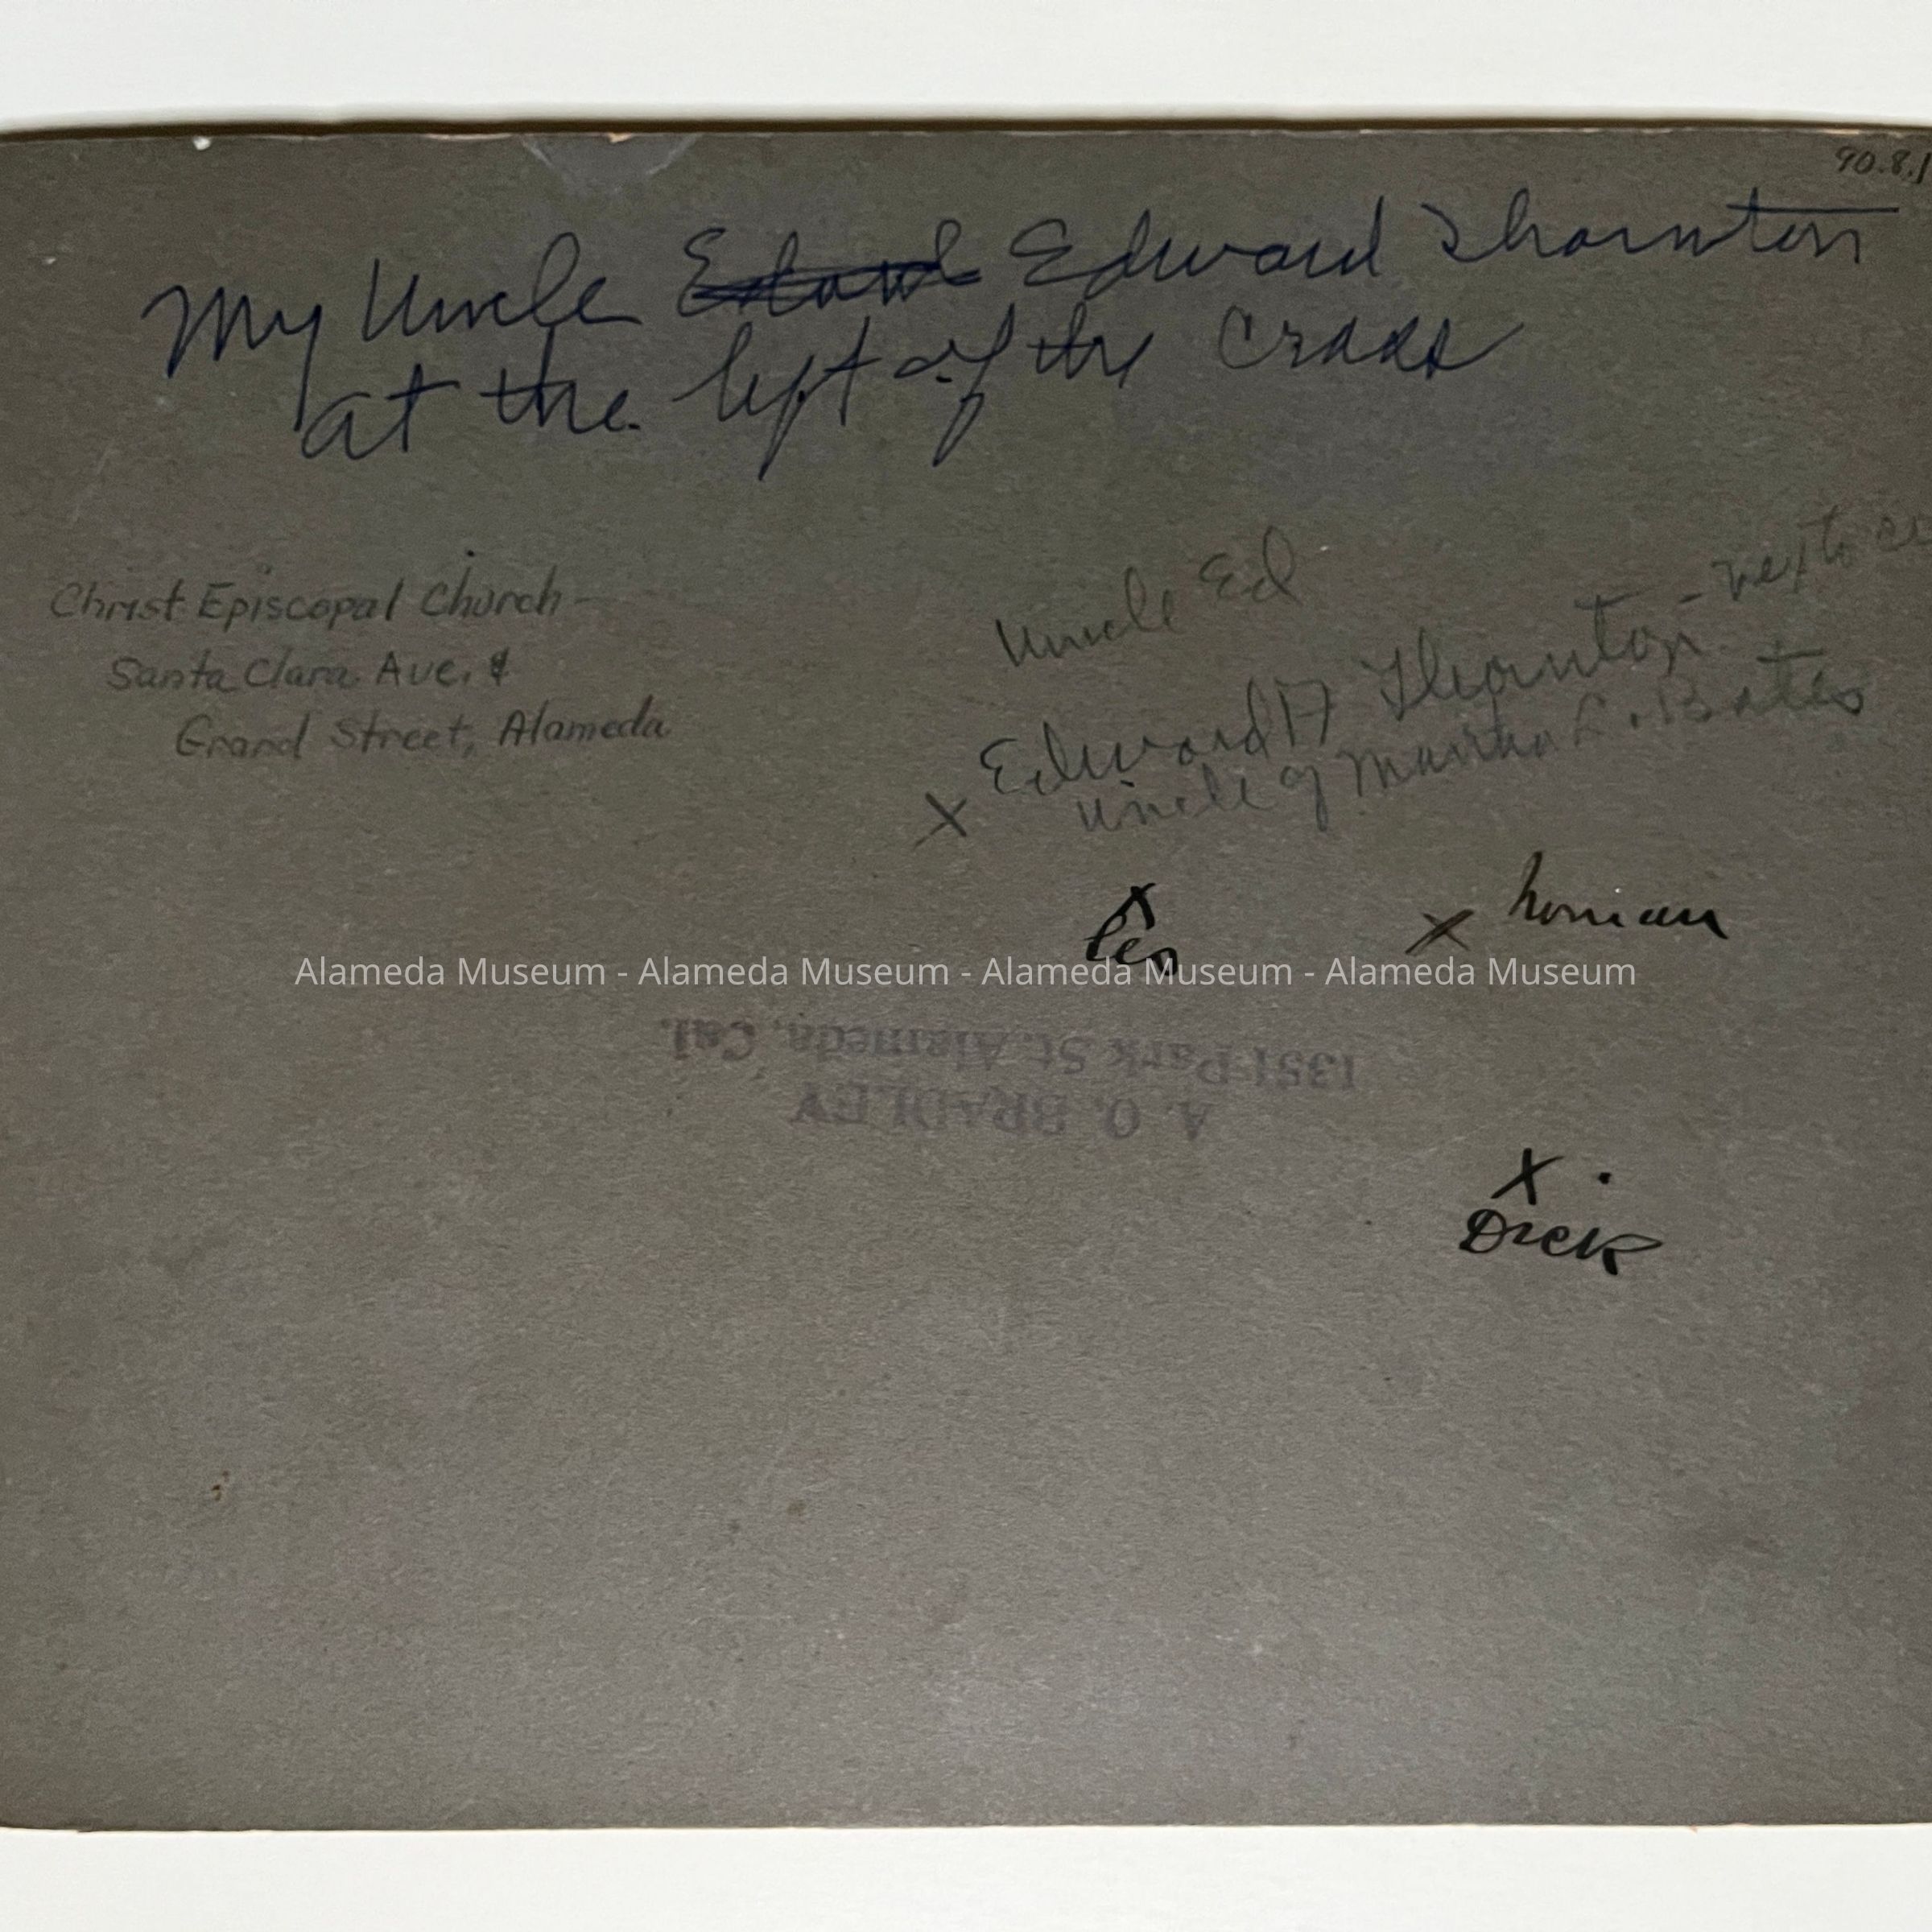 90.8.1
My Uncle Edward Thornton
at the left of the Cross
Christ Episcopal Church -
Santa Clara Ave. &
Grand Street, Alameda
Uncle Ed
X Edward A Thornton - next to
uncle of Martha L. Bates
X
Len
X
Alameda Museum - Alameda Museum - Alameda Museum - Alameda Museum
A. O. BRADLEY
1351 Park St. Alameda, Cal.
X
Dick